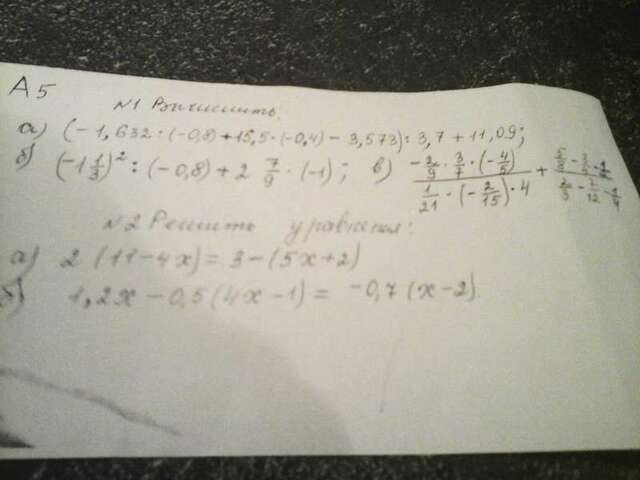 А5
№1 Вычислить:
а) (-1,632:(-0,8)+15,5·(-0,4)-3,573):3,7+11,09;
б) (-1 1/3)²:(-0,8)+2 7/9·(-1); в) (-2/9·3/7·(-4/5))/(1/21·(-2/15)·4) +
№2 Решить уравнения:
а) 2(11-4x)=3-(5x+2)
б) 1,2x-0,5(4x-1)= -0,7(x-2)